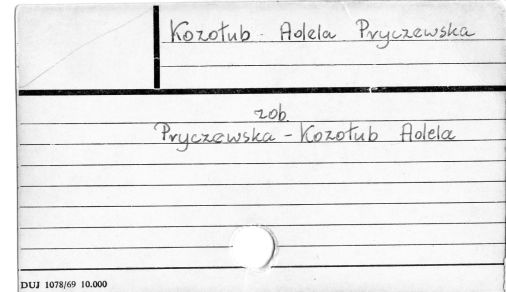 Kozołub Adela Pryczewska
zob.
Pryczewska - Kozołub Adela
DUJ 1078/69 10.000